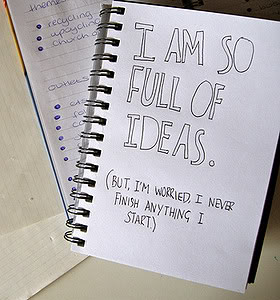 theme
recycling
upcycling
church o
I AM SO
FULL OF
IDEAS.
(BUT, I'M WORRIED, I NEVER
FINISH ANYTHING I
START.)